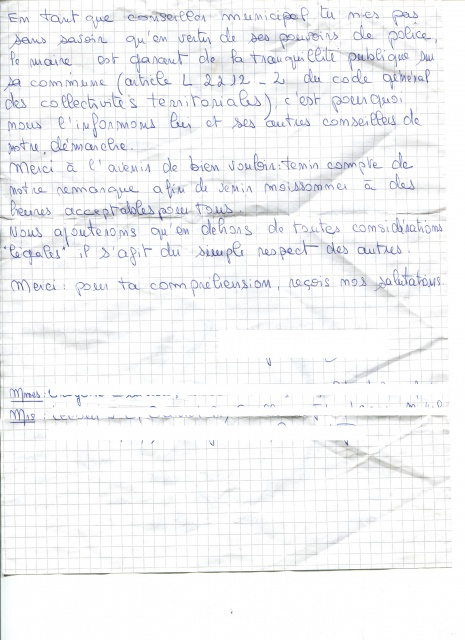 En tant que conseiller municipal tu n'es pas
sans savoir qu'en vertu de ses pouvoirs de police,
le maire est garant de la tranquillité publique sur
sa commune (article L 2212-2 du code général
des collectivités territoriales), c'est pourquoi
nous l'informons lui et ses autres conseillers de
notre démarche.
Merci à l'avenir de bien vouloir tenir compte de
notre remarque afin de venir moissonner à des
heures acceptables pour tous.
Nous ajouterons qu'en dehors de toutes considérations
"légales" il s'agit du simple respect des autres.
Merci pour ta compréhension, reçois nos salutations.
Mmes:
Mrs: